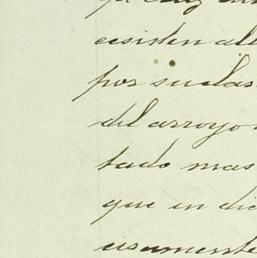 ecsisten al
por su clas
del arroyo
tado mas
que en dic
usamente